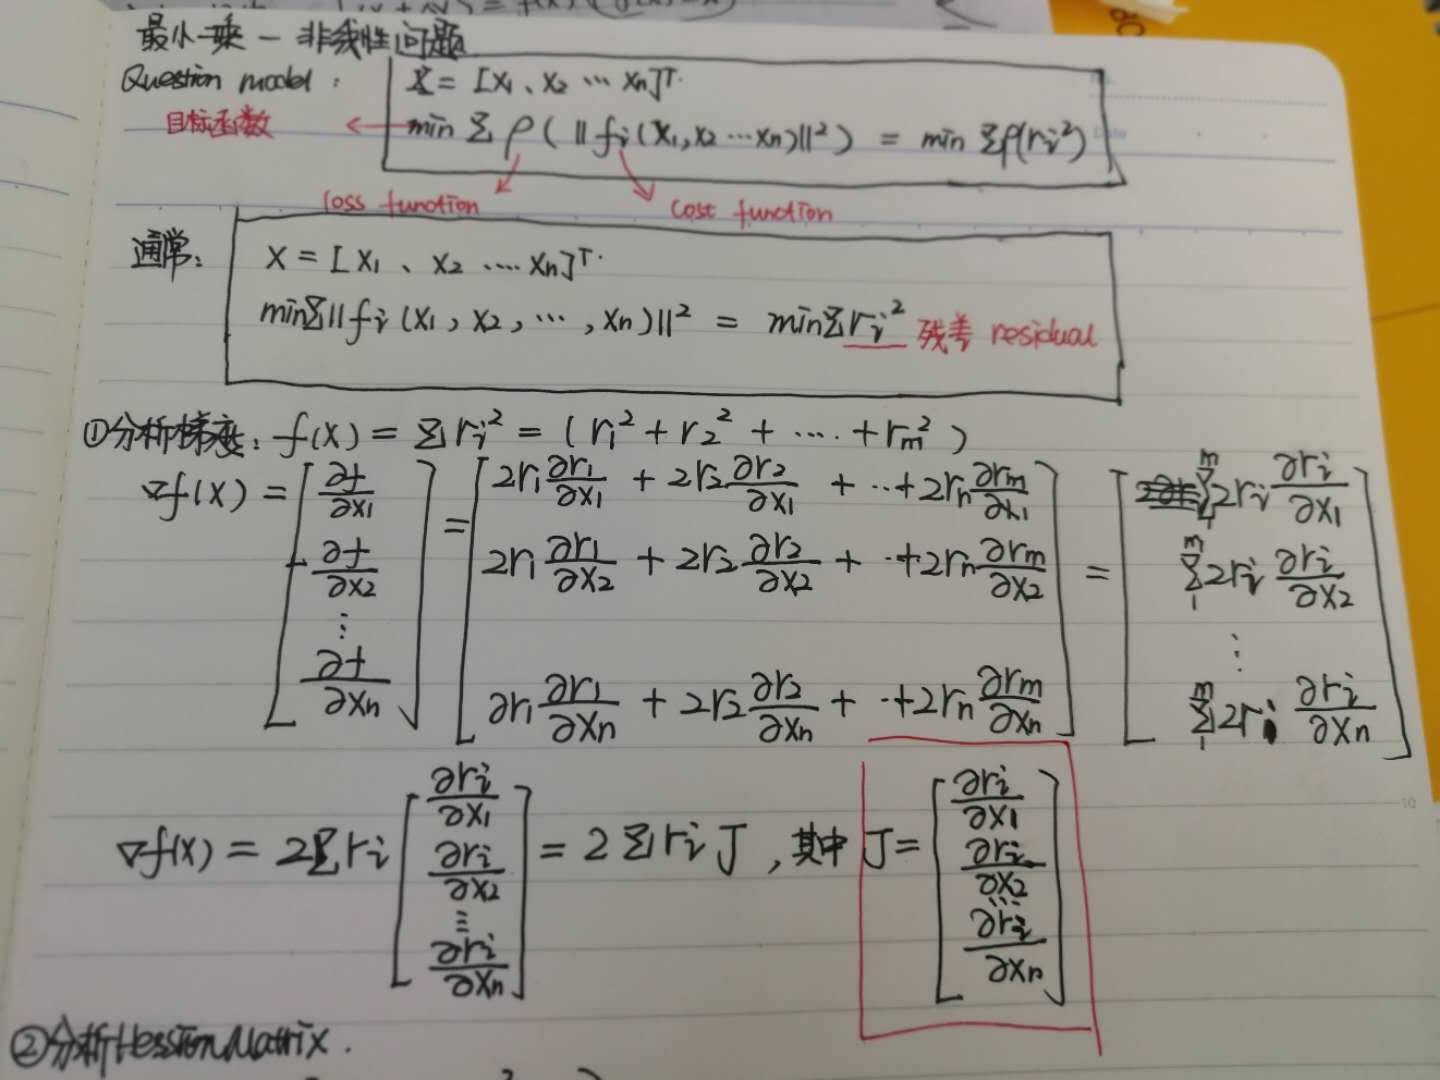 最小二乘 — 非线性问题
Question model: X = [x₁、x₂ ⋯ xₙ]ᵀ
目标函数 ← min Σ ρ(‖fᵢ(x₁,x₂⋯xₙ)‖²) = min Σρ(rᵢ²)
loss function cost function
通常: X = [x₁、x₂ ⋯⋯ xₙ]ᵀ
minΣ‖fᵢ(x₁, x₂, ⋯, xₙ)‖² = minΣrᵢ² 残差 residual
①分析梯度: f(x) = Σrᵢ² = (r₁² + r₂² + ⋯⋯ + rₘ²)
∇f(x) = [∂f/∂x₁ ∂f/∂x₂ ⋮ ∂f/∂xₙ] = [2r₁ ∂r₁/∂x₁ + 2r₂ ∂r₂/∂x₁ + ⋯ + 2rₙ ∂rₘ/∂x₁
2r₁ ∂r₁/∂x₂ + 2r₂ ∂r₂/∂x₂ + ⋯ + 2rₙ ∂rₘ/∂x₂
∂r₁ ∂r₁/∂xₙ + 2r₂ ∂r₂/∂xₙ + ⋯ + 2rₙ ∂rₘ/∂xₙ] = [Σ₁ᵐ 2rᵢ ∂rᵢ/∂x₁
Σ₁ᵐ 2rᵢ ∂rᵢ/∂x₂
⋮
Σ₁ᵐ 2rᵢ ∂rᵢ/∂xₙ]
∇f(x) = 2Σrᵢ [∂rᵢ/∂x₁ ∂rᵢ/∂x₂ ⋮ ∂rᵢ/∂xₙ] = 2Σrᵢ J , 其中 J = [∂rᵢ/∂x₁ ∂rᵢ/∂x₂ ⋯ ∂rᵢ/∂xₙ]
10
②分析Hession Matrix.